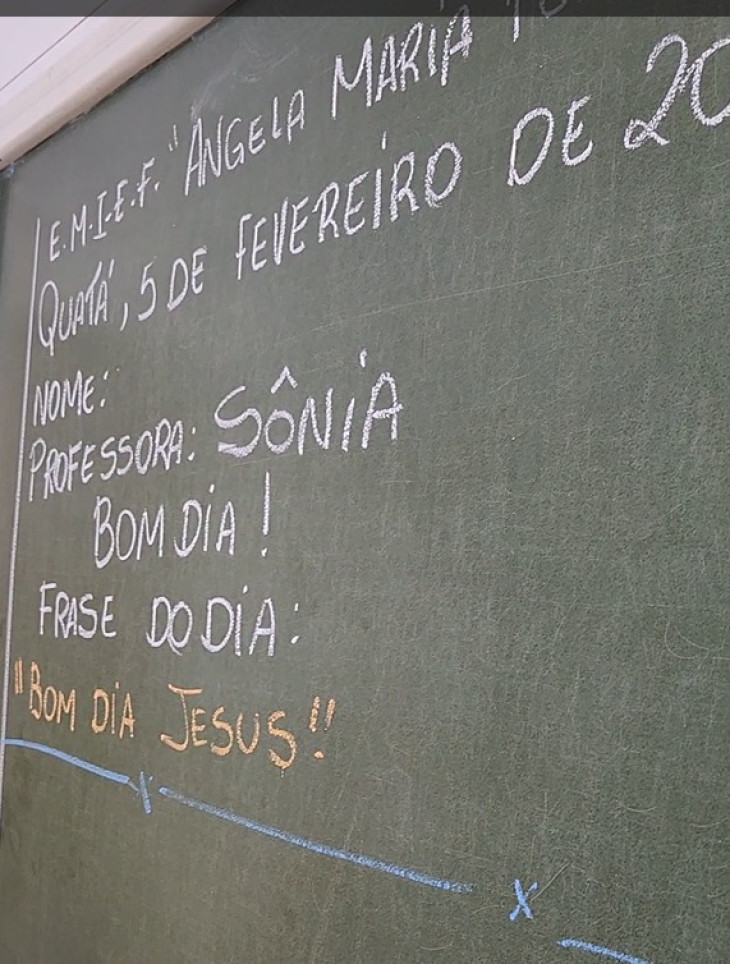 E.M.I.E.F. "ÂNGELA MARIA
QUATÁ, 5 DE FEVEREIRO DE 20
NOME:
PROFESSORA: SÔNIA
BOM DIA!
FRASE DO DIA:
"BOM DIA JESUS!!
x
x